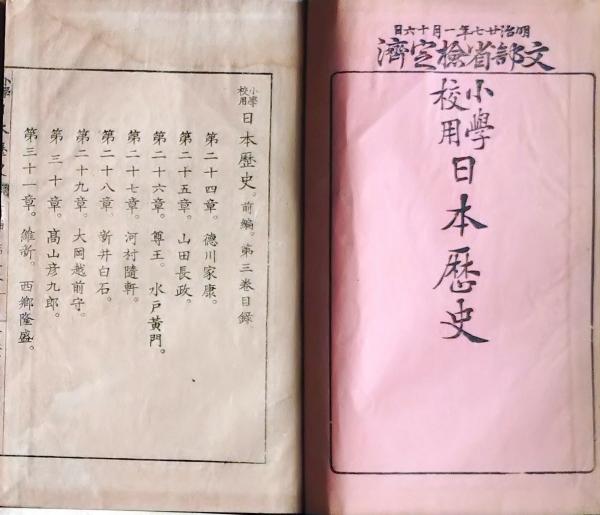 明治廿七年一月十六日
文部省檢定濟
小學校用日本歷史
小學校用日本歷史。前編。第三卷目錄
第二十四章。德川家康。
第二十五章。山田長政。
第二十六章。尊王。水戶黃門。
第二十七章。河村隨軒。
第二十八章。新井白石。
第二十九章。大岡越前守。
第三十章。高山彥九郎。
第三十一章。維新。西鄉隆盛。